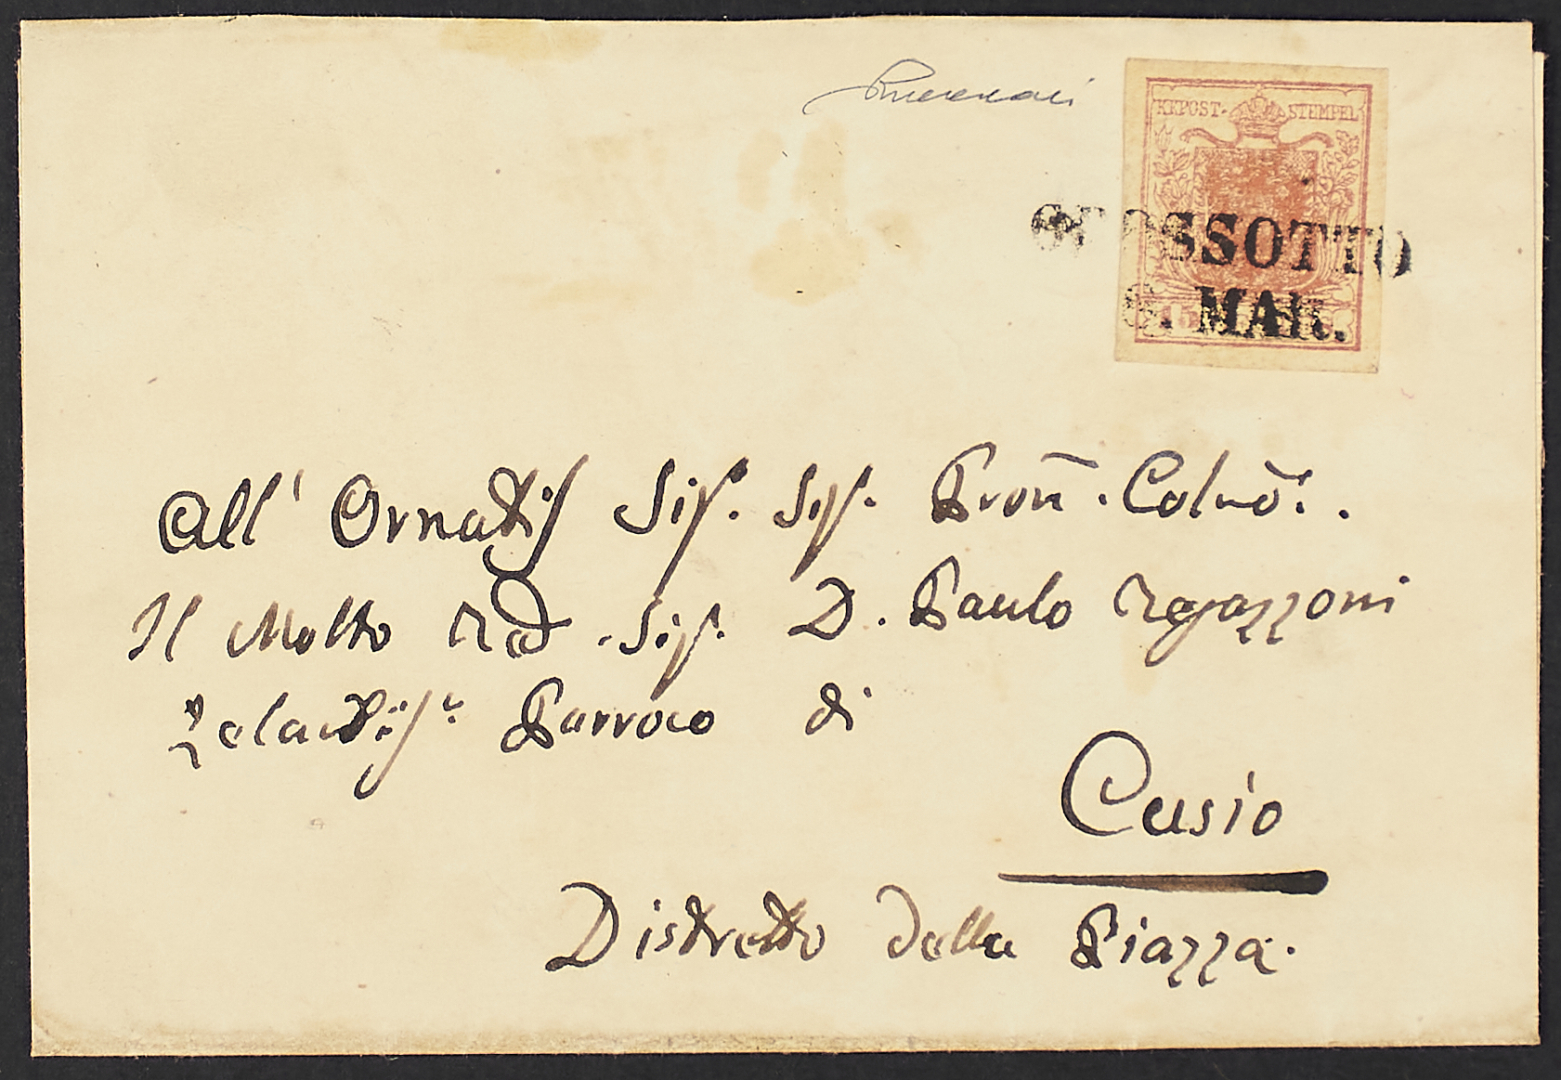 KKPOST-STEMPEL
GROSSOTTO
6. MAR.
15
All' Ornatis Sig. Sig. Pron. Colmo.
Il Molto Rdo. Sig. D. Paulo Regazzoni
Zelantis. Parroco di
Cusio
Distretto della Piazza.